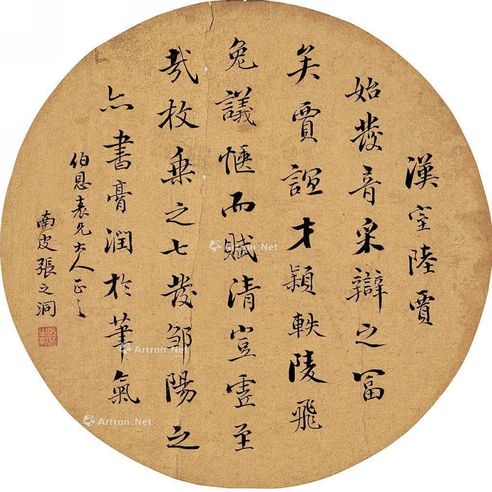 漢室陸賈
始發音采辯之冨
矣賈誼才穎軼陵飛
兔議愜而賦清豈虛至
哉枚乘之七發鄒陽之
書膏潤於筆氣
伯恩兄大人正之
南皮張之洞
Artron.Net
Artron.Net
Artron.Net